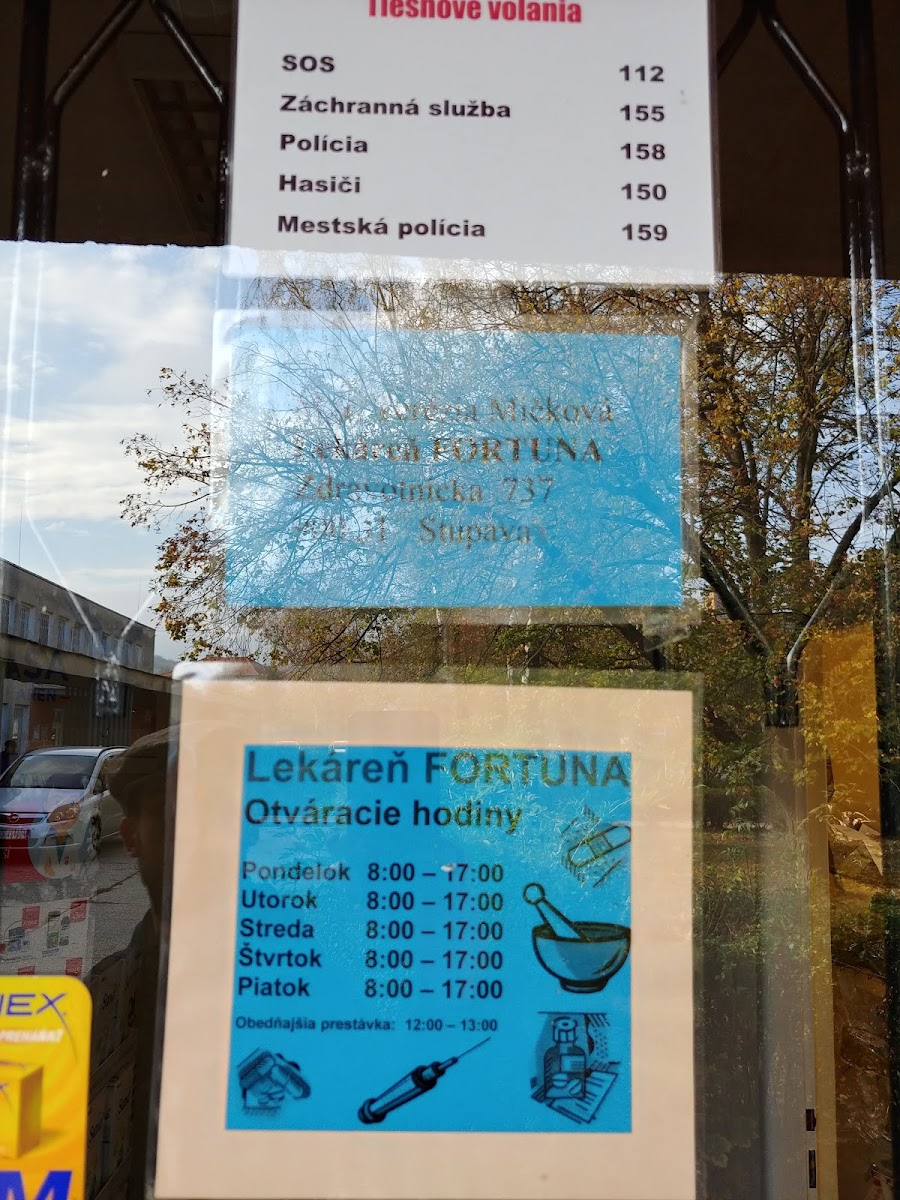 Tiesňové volania
SOS 112
Záchranná služba 155
Polícia 158
Hasiči 150
Mestská polícia 159
Mičková
Lekáreň FORTUNA
Zdravotnícka 737
Stupava
Lekáreň FORTUNA
Otváracie hodiny
Pondelok 8:00 – 17:00
Utorok 8:00 – 17:00
Streda 8:00 – 17:00
Štvrtok 8:00 – 17:00
Piatok 8:00 – 17:00
Obedňajšia prestávka: 12:00 – 13:00